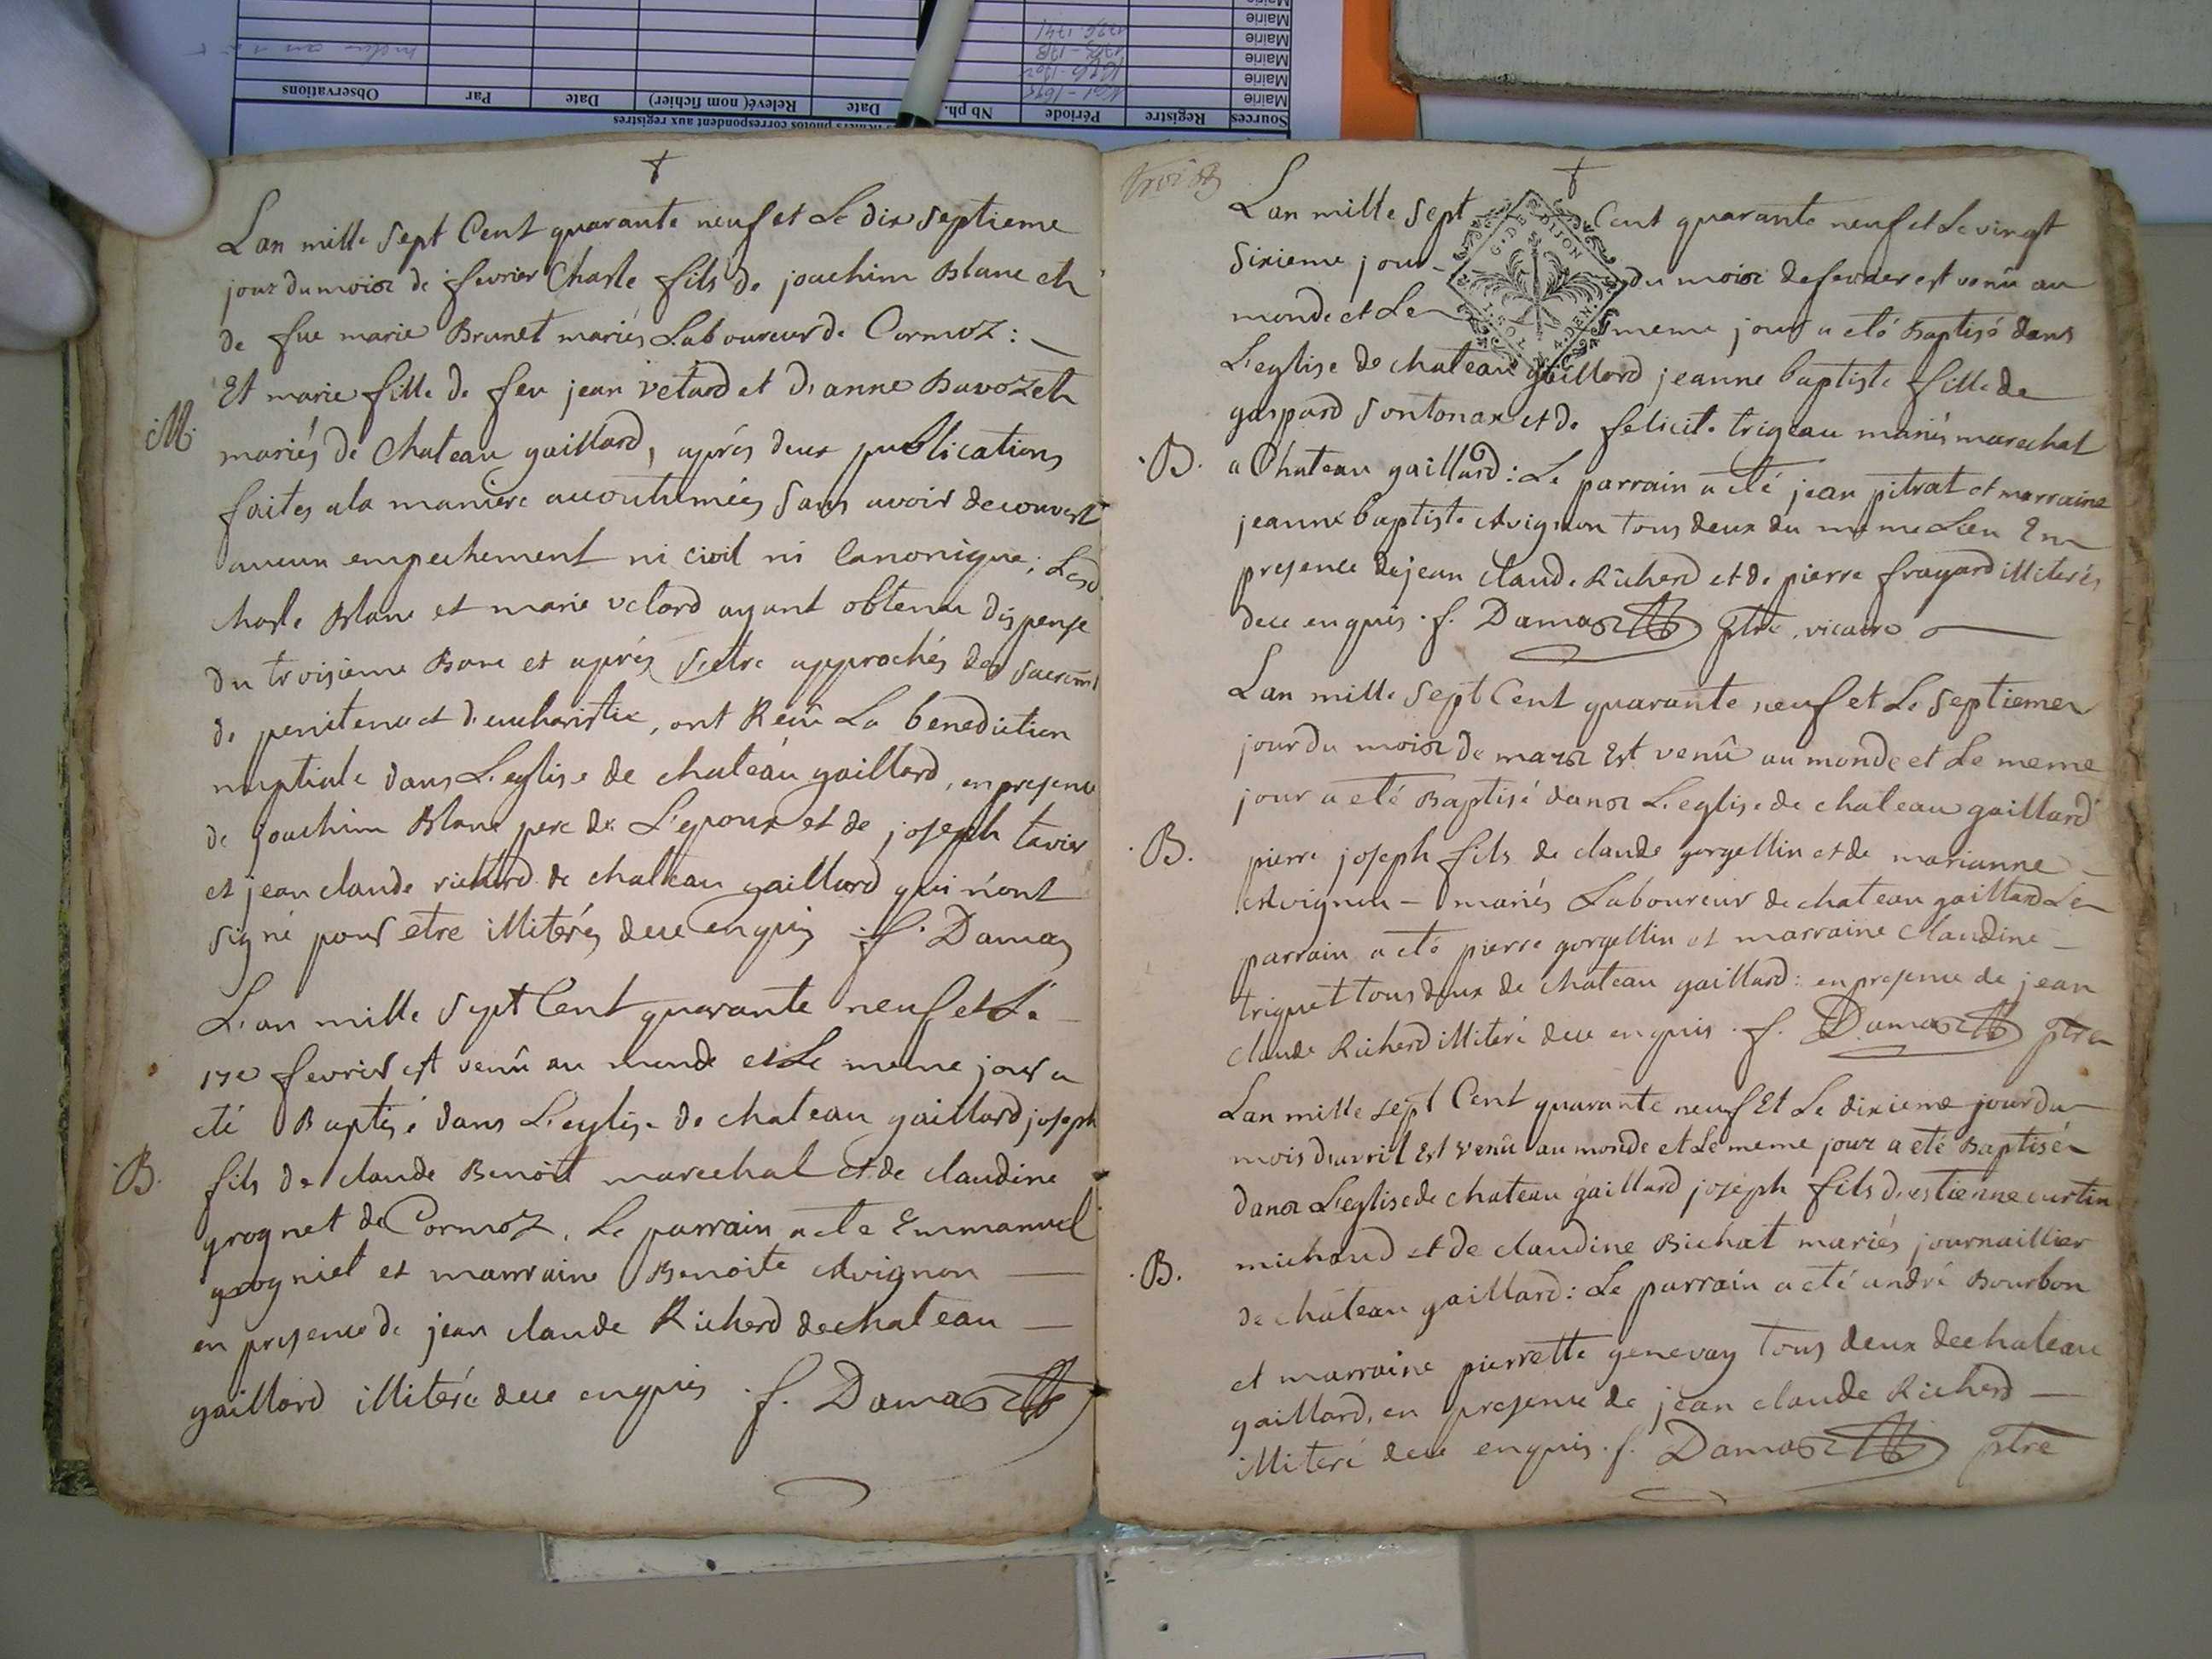 Sources Registre Période Nb ph. Date Relevé( nom fichier) Date Par Observations
Mairie
Mairie
Mairie
Mairie
Mairie
Lan mille Sept Cent quarante neuf et Le dix Septieme
jour du mois de fevrier Charle fils de joachim Blanc et
de fue marie Brunet mariés Laboureur de Cormoz :
Et marie fille de feu jean vetard et d'anne Bavozet
M.
mariés de Chateau gaillard, aprés deux publications
faites ala maniere accoutumées Sans avoir decouvert
aucun empechement ni civil ni Canonique ; Lesd
charle Blanc et marie vetard ayant obtenu dispense
du troisieme Banc et aprés S'etre approchés des sacremt
de penitence et d'eucharistie, ont Reçû La benediction
nuptiale dans L'eglise de chateau gaillard, en presence
de joachim Blanc pere de L'epoux et de joseph tavier
et jean claude richerd de chateau gaillard qui n'ont
signé pour etre illiterés dece enquis f. Damas
L'an mille Sept Cent quarante neuf et Le
17e fevrier est venû au monde et Le meme jour a
eté Baptisé dans L'eglise de chateau gaillard joseph
B.
fils de claude Benoit marechal et de claudine
grognet de Cormoz. Le parrain a ete Emmanuel
grogniet et marraine Benoite Avignon
en presence de jean claude Richerd de chateau
gaillard illiteré dece enquis f. Damas
Lan mille Sept Cent quarante neuf et Le vingt
G. DE DIJON
Sixieme jour du mois de fevrier est venû au
monde et Le meme jour a eté Baptisé dans
L'eglise de chateau gaillard jeanne baptiste fille de
gaspard Sontonax et de felicité trigeau mariés marechal
B.
a Chateau gaillard : Le parrain a eté jean pitrat et marraine
jeanne baptiste Avignon tous deux du meme Lieu En
presence de jean claude Richerd et de pierre frayard illiterés
dece enquis . f. Damas ptre . vicaire
Lan mille Sept Cent quarante neuf et Le Septieme
jour du mois de mars Est venû au monde et Le meme
jour a eté Baptisé dans L'eglise de chateau gaillard
B.
pierre joseph fils de claude gorgellin et de marianne
Avignon mariés Laboureur de chateau gaillard Le
parrain a eté pierre gorgellin et marraine Claudine
triquet tous deux de chateau gaillard : en presence de jean
claude Richerd illiteré dece enquis . f. Damas ptre
Lan mille sept Cent quarante neuf Et Le dixieme jour du
mois d'avril Est venû au monde et Le meme jour a eté Baptisé
dans L'eglise de chateau gaillard joseph fils d'estienne curtin
michaud et de claudine Bichat mariés journaillier
B.
de chateau gaillard : Le parrain a eté andré Bourbon
et marraine pierrette genevay tous deux de chateau
gaillard, en presence de jean claude Richerd
illiteré dece enquis . f. Damas ptre